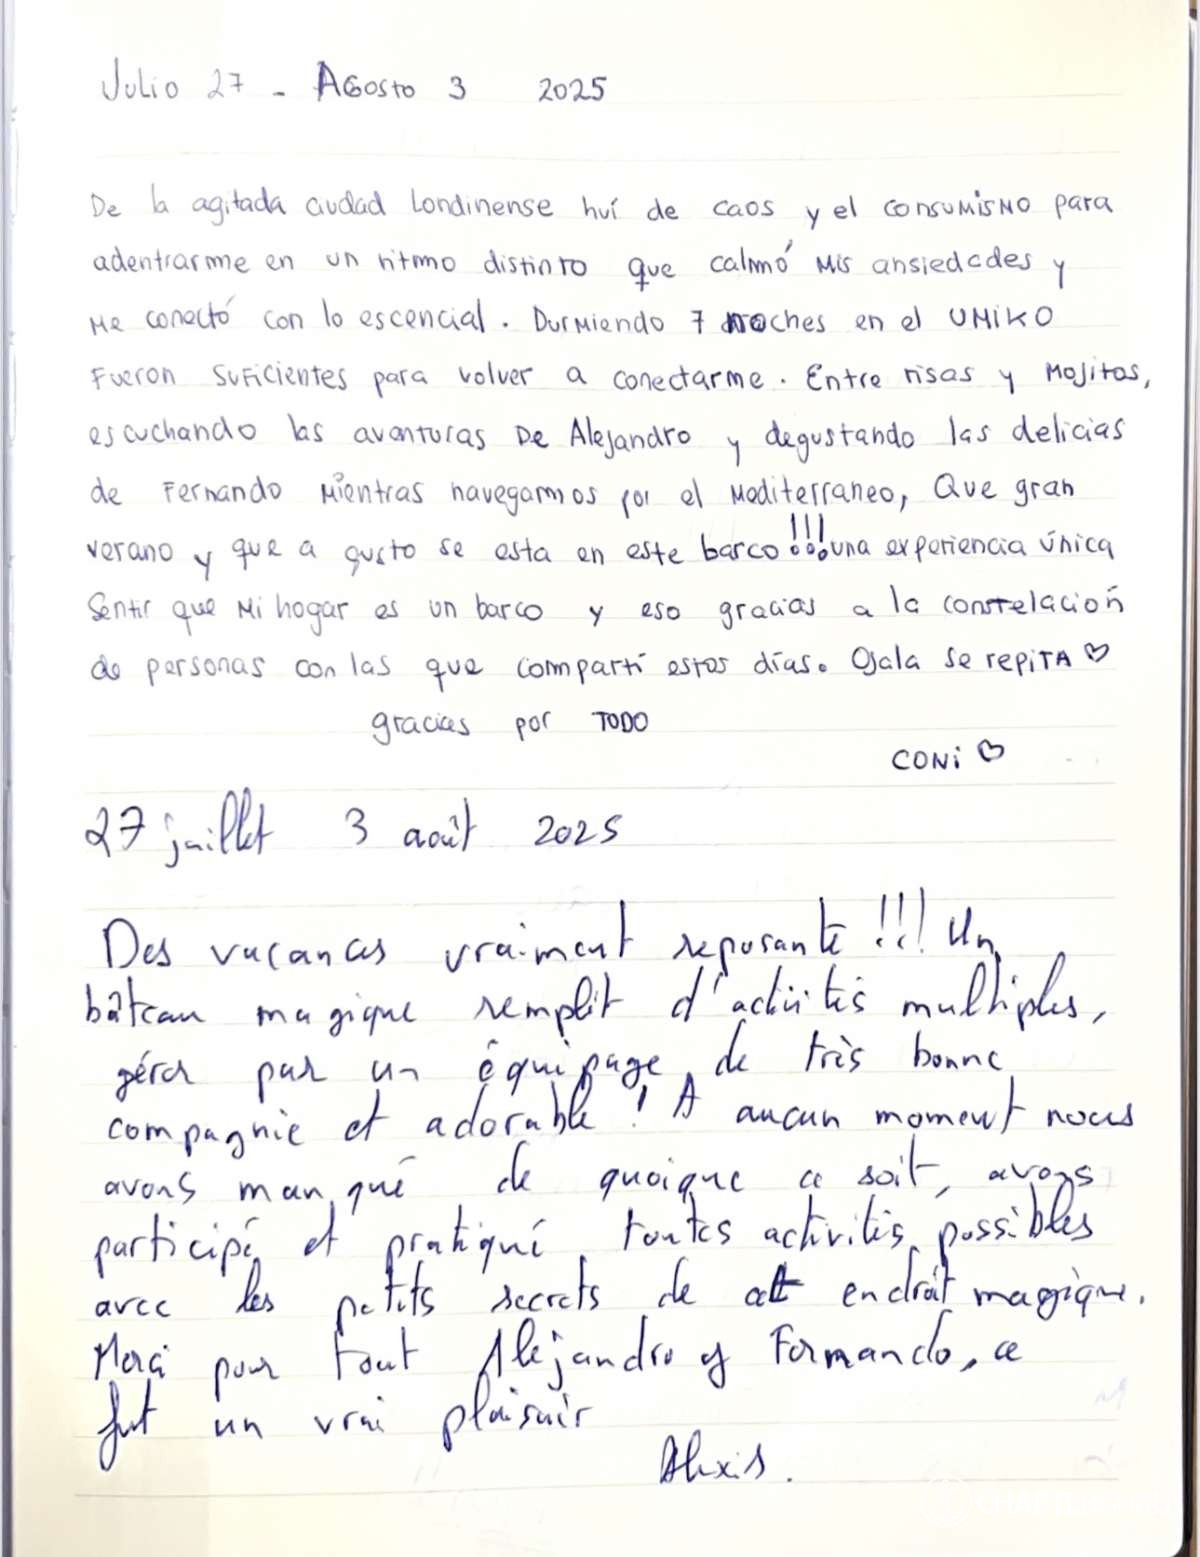 Julio 27 - Agosto 3 2025
De la agitada ciudad Londinense huí de caos y el consumismo para
adentrarme en un ritmo distinto que calmó mis ansiedades y
me conectó con lo escencial. Durmiendo 7 noches en el UMIKO
Fueron suficientes para volver a conectarme. Entre risas y Mojitos,
escuchando las aventuras De Alejandro y degustando las delicias
de Fernando Mientras navegamos por el Mediterraneo, Que gran
verano y que a gusto se esta en este barco!!! una experiencia única
Sentir que Mi hogar es un barco y eso gracias a la constelación
de personas con las que compartí estos días. Ojala se repita ♡
gracias por TODO
CONi ♡
27 juillet 3 août 2025
Des vacances vraiment reposante!!! Un
bâteau magique remplit d'activités multiples,
gérer par un équipage de très bonne
compagnie et adorable! A aucun moment nous
avons manqué de quoique ce soit, avons
participé et pratiqué toutes activités possibles
avec les petits secrets de cet endroit magique.
Merci pour tout Alejandro y Fernando, ce
fut un vrai plaisair
Alexis.